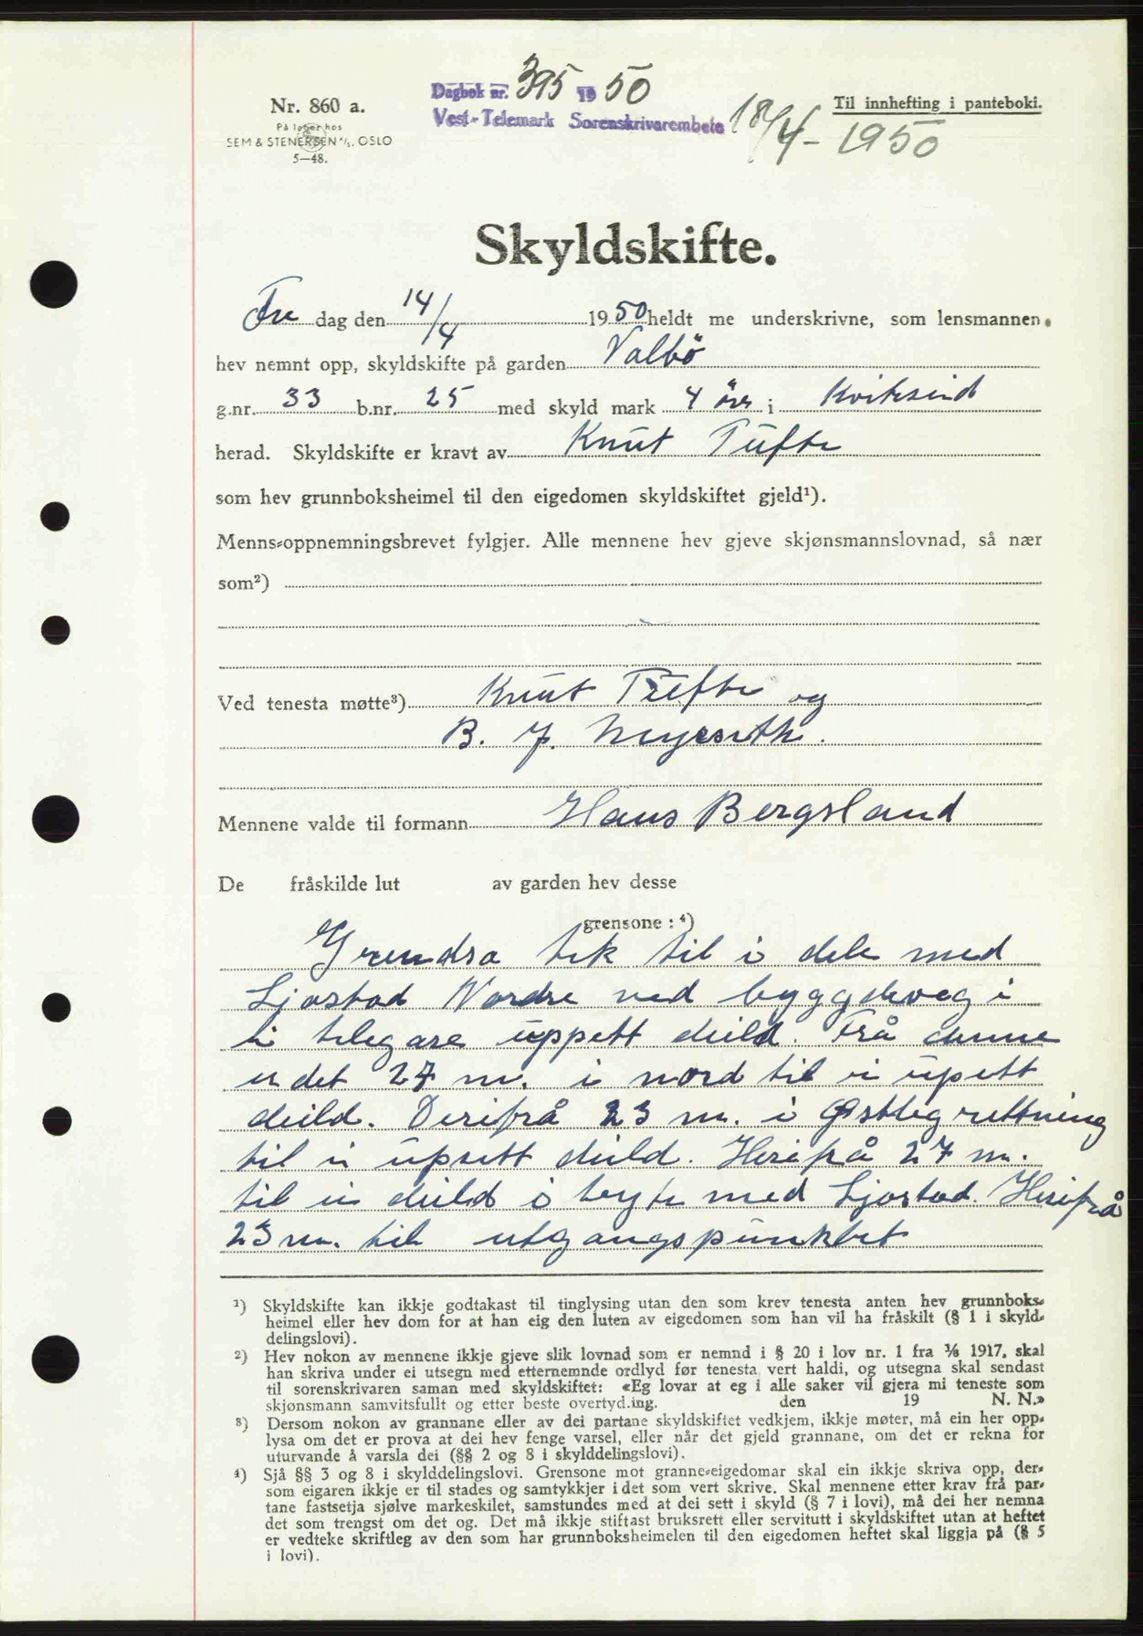 Dagbok nr. 395 1950
Nr. 860 a.
Til innhefting i panteboki.
Vest-Telemark Sorenskrivarembete 18/4-1950
På lager hos
SEM & STENERSEN A/S. OSLO
5—48.
Skyldskifte.
Fre dag den 14/4 1950 heldt me underskrivne, som lensmannen
hev nemnt opp, skyldskifte på garden Valbö
g.nr. 33 b.nr. 25 med skyld mark 4 öre i Kviteseid
herad. Skyldskifte er kravt av Knut Tufte
som hev grunnboksheimel til den eigedomen skyldskiftet gjeld¹).
Menns-oppnemningsbrevet fylgjer. Alle mennene hev gjeve skjønsmannslovnad, så nær
som²)
Ved tenesta møtte³) Knut Tufte og
B. J.
Mennene valde til formann Hans Bergsland
De fråskilde lut av garden hev desse
grensone : ⁴)
Grendsa tek til i dele med
Ljostad Nordre ved byggdeveg i
ei uppsett deild. Frå denne
er det 27 m. i nord til ei upsett
deild. Derifrå 23 m. i Østleg rettning
til ei upsett deild. Herifrå 27 m.
til ei deild i byte med Ljostad. Herifrå
23 m. til utgangspunktet
¹) Skyldskifte kan ikkje godtakast til tinglysing utan den som krev tenesta anten hev grunnboks-
heimel eller hev dom for at han eig den luten av eigedomen som han vil ha fråskilt (§ 1 i skyld-
delingslovi).
²) Hev nokon av mennene ikkje gjeve slik lovnad som er nemnd i § 20 i lov nr. 1 fra 1917, skal
han skriva under ei utsegn med etternemnde ordlyd før tenesta vert haldi, og utsegna skal sendast
til sorenskrivaren saman med skyldskiftet: «Eg lovar at eg i alle saker vil gjera mi teneste som
skjønsmann samvitsfullt og etter beste overtyding. den 19 N. N.»
³) Dersom nokon av grannane eller av dei partane skyldskiftet vedkjem, ikkje møter, må ein her opp-
lysa om det er prova at dei hev fenge varsel, eller når det gjeld grannane, om det er rekna for
uturvande å varsla dei (§§ 2 og 8 i skylddelingslovi).
⁴) Sjå §§ 3 og 8 i skylddelingslovi. Grensone mot granne-eigedomar skal ein ikkje skriva opp, der-
som eigaren ikkje er til stades og samtykkjer i det som vert skrive. Skal mennene etter krav frå par-
tane fastsetja sjølve markeskilet, samstundes med at dei sett i skyld (§ 7 i lovi), må dei her nemna
det som trengst om det og. Det må ikkje stiftast bruksrett eller servitutt i skyldskiftet utan at heftet
er vedteke skriftleg av den som har grunnboksheimelen til den eigedomen heftet skal liggja på (§ 5
i lovi).